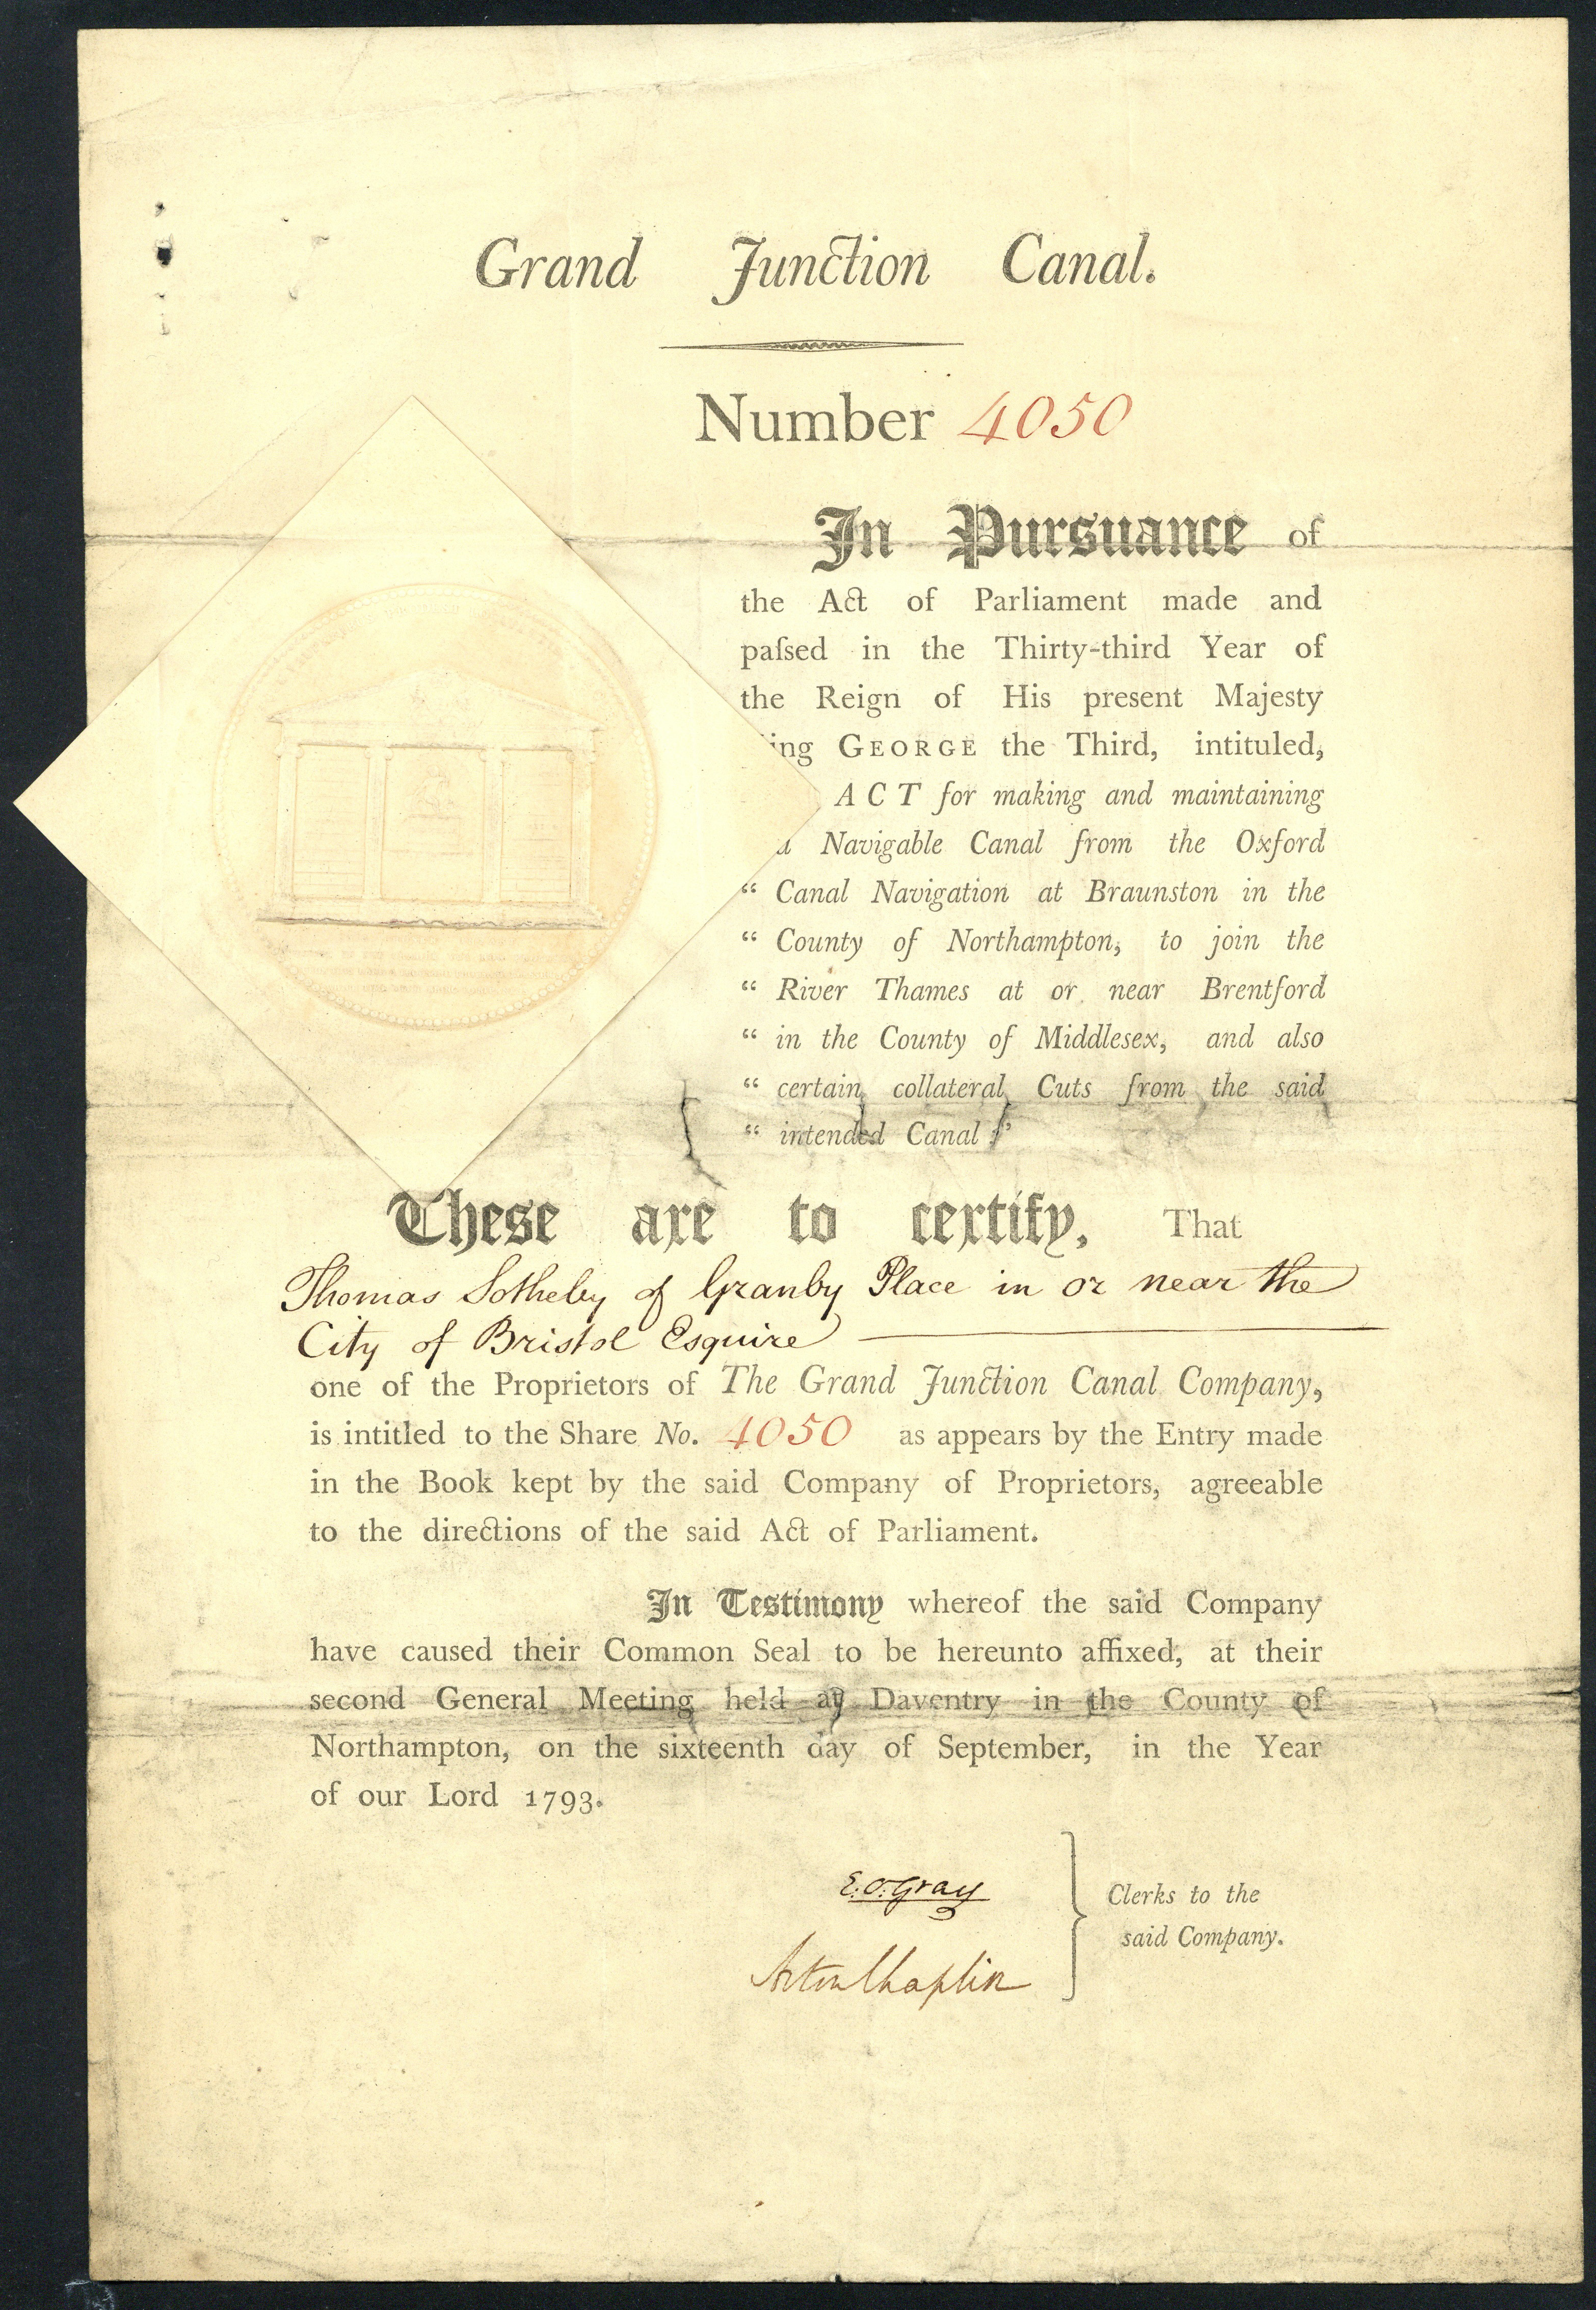 Grand Junction Canal.
Number 4050
In Pursuance of
the Act of Parliament made and
paſsed in the Thirty-third Year of
the Reign of His present Majesty
ing GEORGE the Third, intituled,
ACT for making and maintaining
a Navigable Canal from the Oxford
“ Canal Navigation at Braunston in the
“ County of Northampton, to join the
“ River Thames at or near Brentford
“ in the County of Middlesex, and also
“ certain collateral Cuts from the said
“ intended Canal ;”
These are to certify, That
Thomas Sotheby of Granby Place in or near the
City of Bristol Esquire
one of the Proprietors of The Grand Junction Canal Company,
is intitled to the Share No. 4050 as appears by the Entry made
in the Book kept by the said Company of Proprietors, agreeable
to the directions of the said Act of Parliament.
In Testimony whereof the said Company
have caused their Common Seal to be hereunto affixed, at their
second General Meeting held at Daventry in the County of
Northampton, on the sixteenth day of September, in the Year
of our Lord 1793.
E. O. Gray
Acton Chaplin
Clerks to the
said Company.